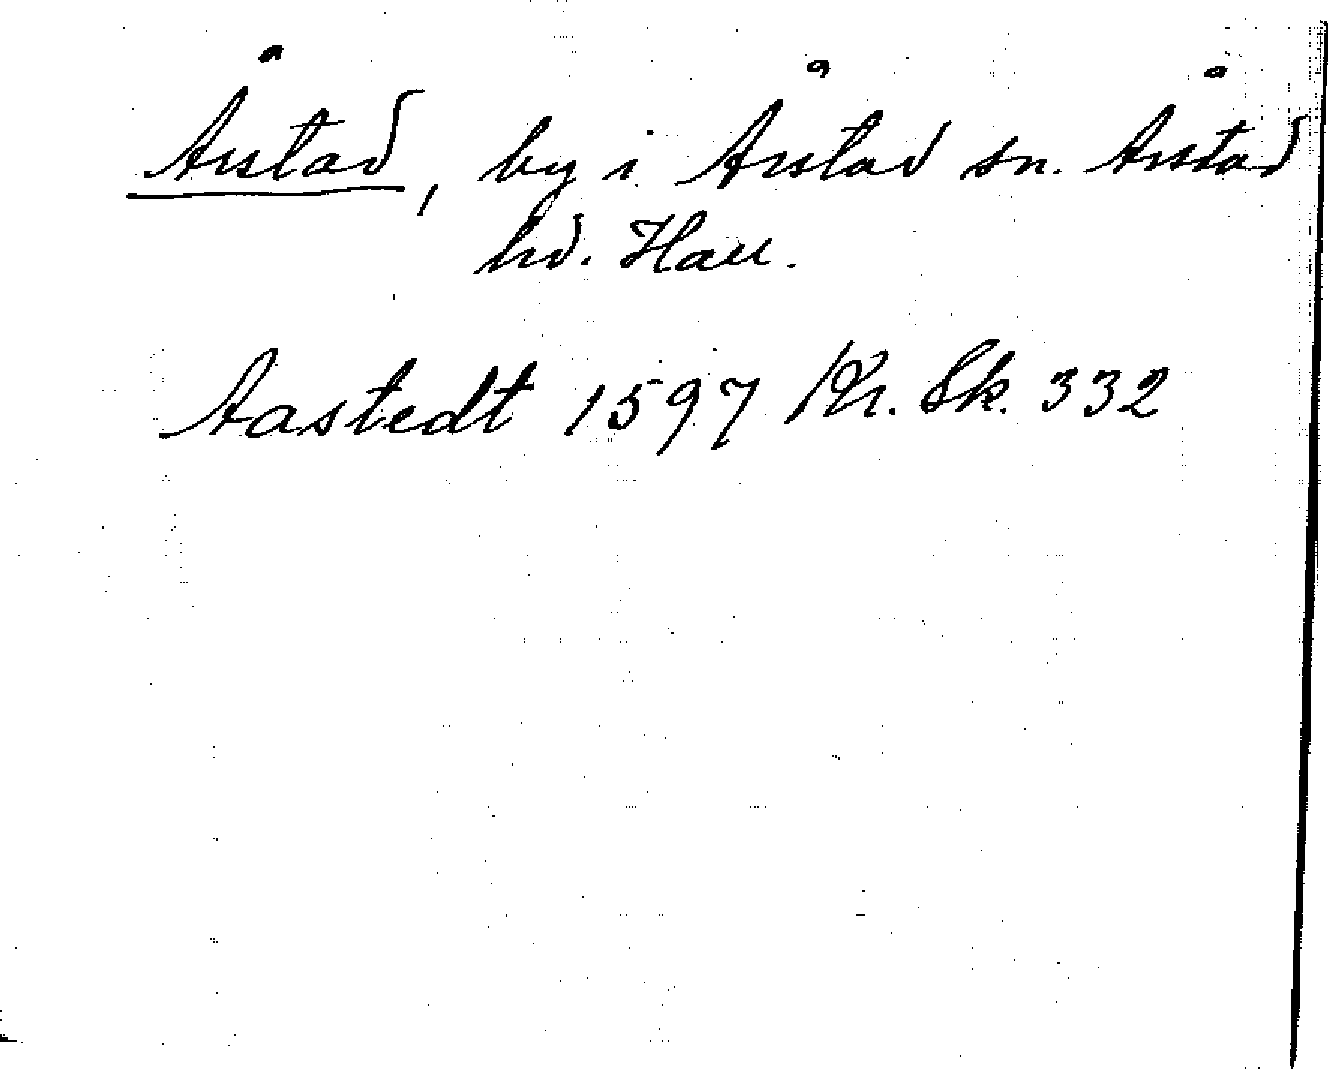 Årstad, by i Årstad sn. Årstad
hd. Hall.
Aastedt 1597 Kr. Sk. 332